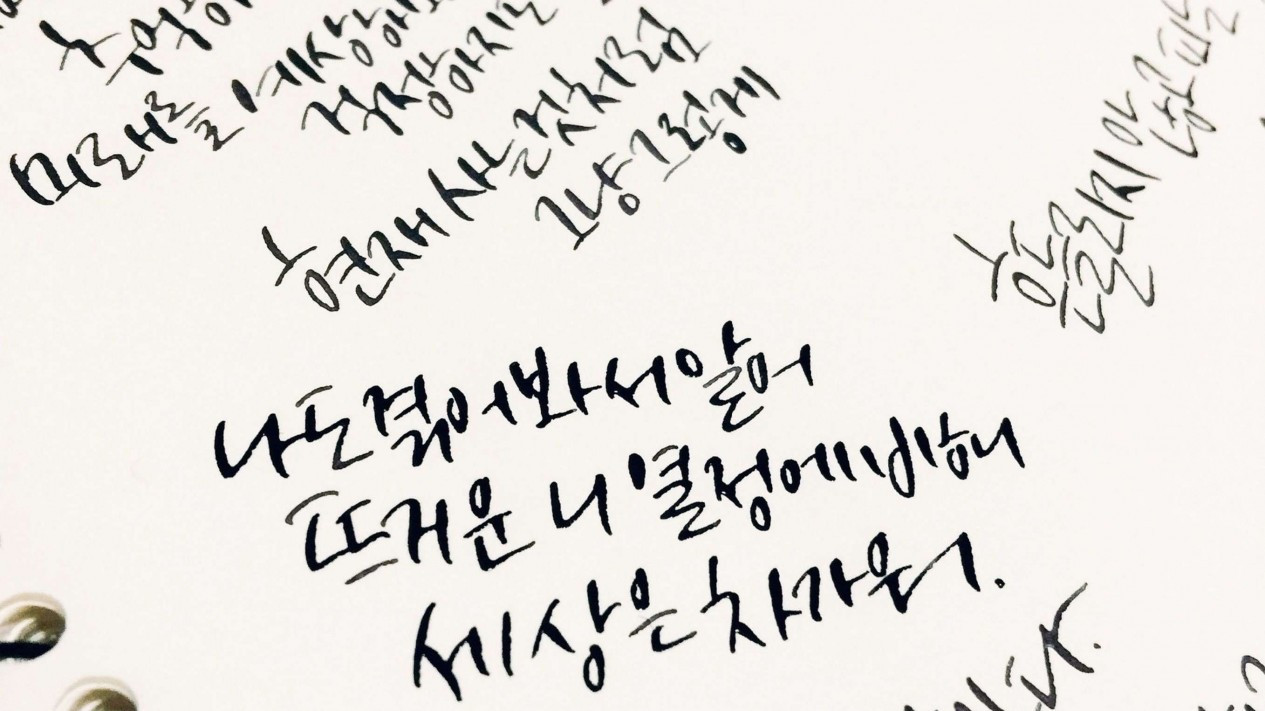 미래를 예상해
걱정하지도
현재 사는 것처럼
그냥 그렇게
흔들리지 않
나도 겪어봐서 알어
뜨거운 니 열정에 비하니
세상은 차가워.